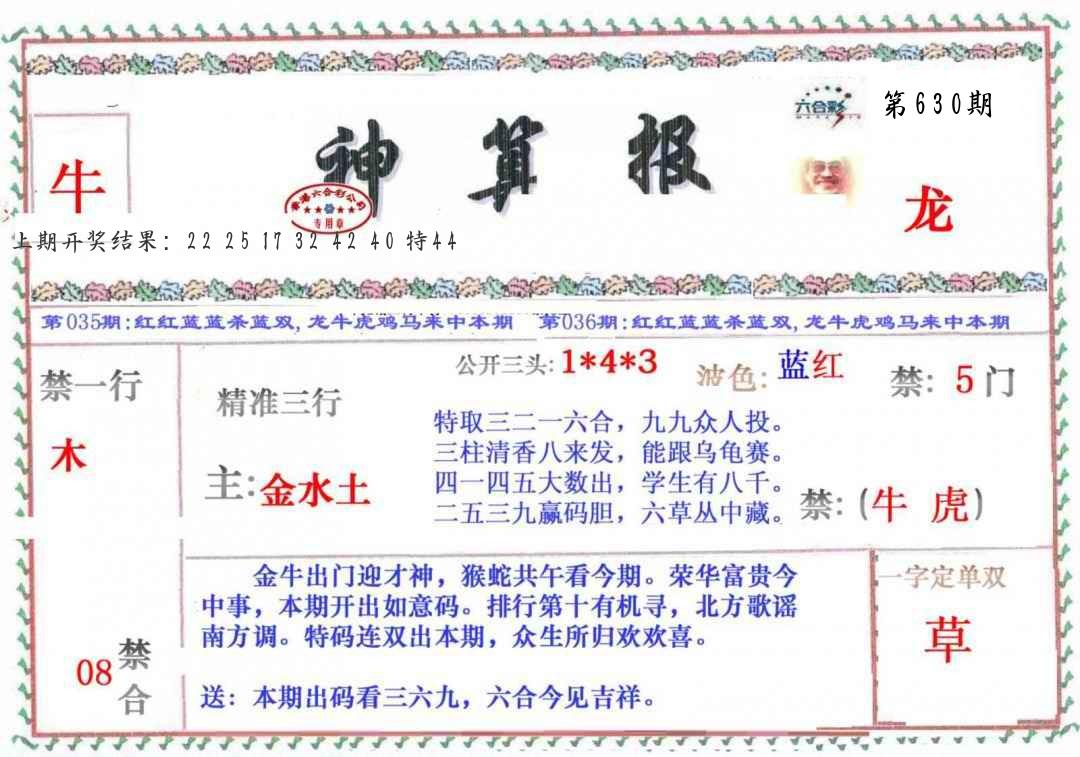 六合彩
第630期
神算报
牛
龙
香港六合彩公司
专用章
上期开奖结果：22 25 17 32 42 40 特44
第035期:红红蓝蓝杀蓝双,龙牛虎鸡马来中本期 第036期:红红蓝蓝杀蓝双,龙牛虎鸡马来中本期
禁一行
木
精准三行
主:金水土
公开三头:1*4*3
波色:蓝红
禁:5门
特取三二一六合，九九众人投。
三柱清香八来发，能跟乌龟赛。
四一四五大数出，学生有八千。
二五三九赢码胆，六草丛中藏。
禁:(牛 虎)
金牛出门迎才神，猴蛇共午看今期。荣华富贵今
中事，本期开出如意码。排行第十有机寻，北方歌谣
南方调。特码连双出本期，众生所归欢欢喜。
送：本期出码看三六九，六合今见吉祥。
08禁合
一字定单双
草